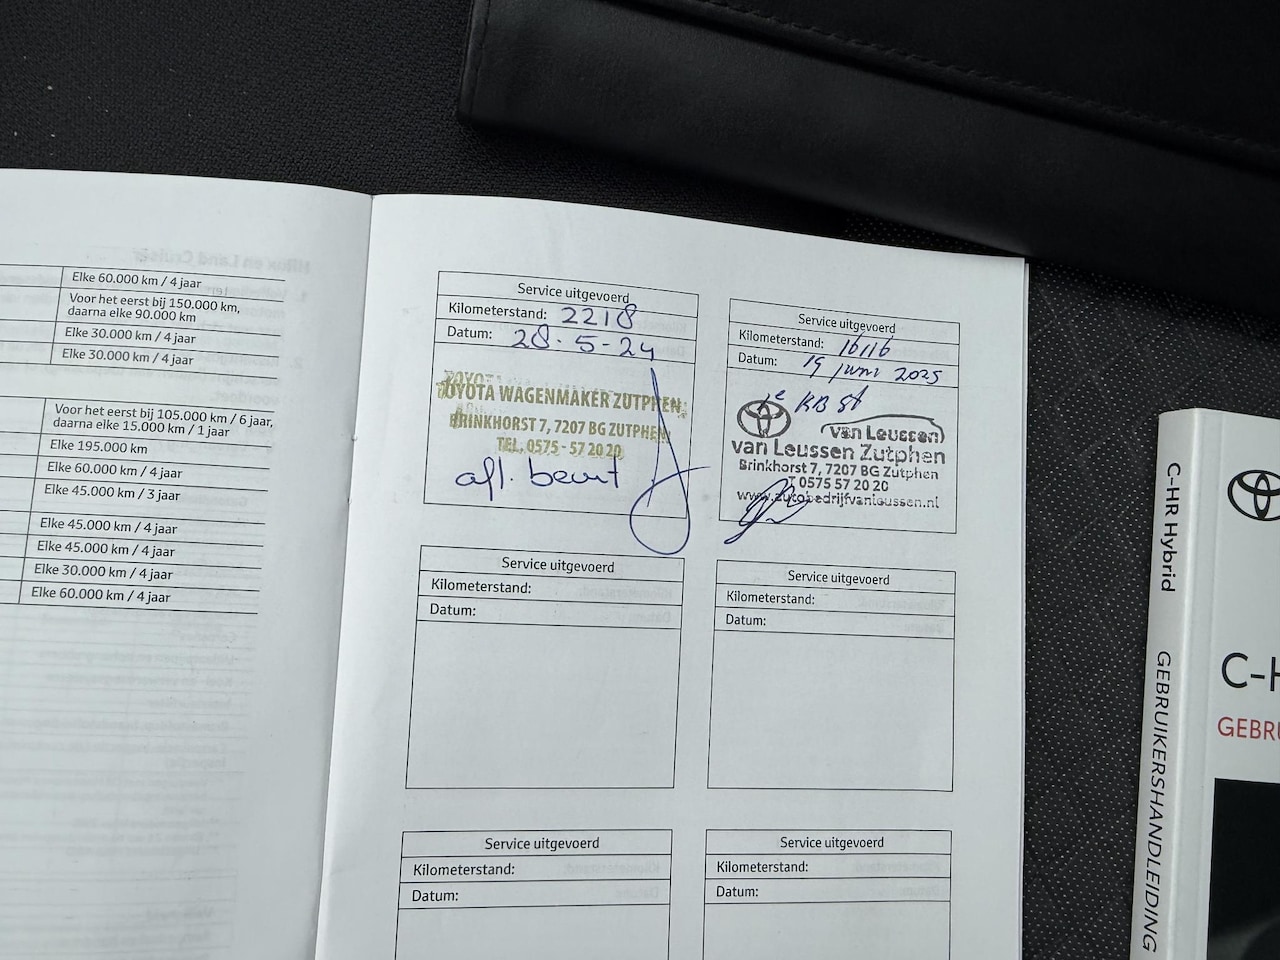 Elke 60.000 km / 4 jaar
Voor het eerst bij 150.000 km,
daarna elke 90.000 km
Elke 30.000 km / 4 jaar
Elke 30.000 km / 4 jaar
Voor het eerst bij 105.000 km / 6 jaar,
daarna elke 15.000 km / 1 jaar
Elke 195.000 km
Elke 60.000 km / 4 jaar
Elke 45.000 km / 3 jaar
Elke 45.000 km / 4 jaar
Elke 45.000 km / 4 jaar
Elke 30.000 km / 4 jaar
Elke 60.000 km / 4 jaar
Service uitgevoerd
Kilometerstand: 2218
Datum: 28-5-24
TOYOTA WAGENMAKER ZUTPHEN
BRINKHORST 7, 7207 BG ZUTPHEN
TEL. 0575 - 57 20 20
afl. beurt
Service uitgevoerd
Kilometerstand: 16116
Datum: 19 juni 2025
1e KB St
van Leussen
van Leussen Zutphen
Brinkhorst 7, 7207 BG Zutphen
T 0575 57 20 20
www.autobedrijfvanleussen.nl
Service uitgevoerd
Kilometerstand:
Datum:
Service uitgevoerd
Kilometerstand:
Datum:
Service uitgevoerd
Kilometerstand:
Datum:
Service uitgevoerd
Kilometerstand:
Datum:
C-HR Hybrid
GEBRUIKERSHANDLEIDING
C-H
GEBRU